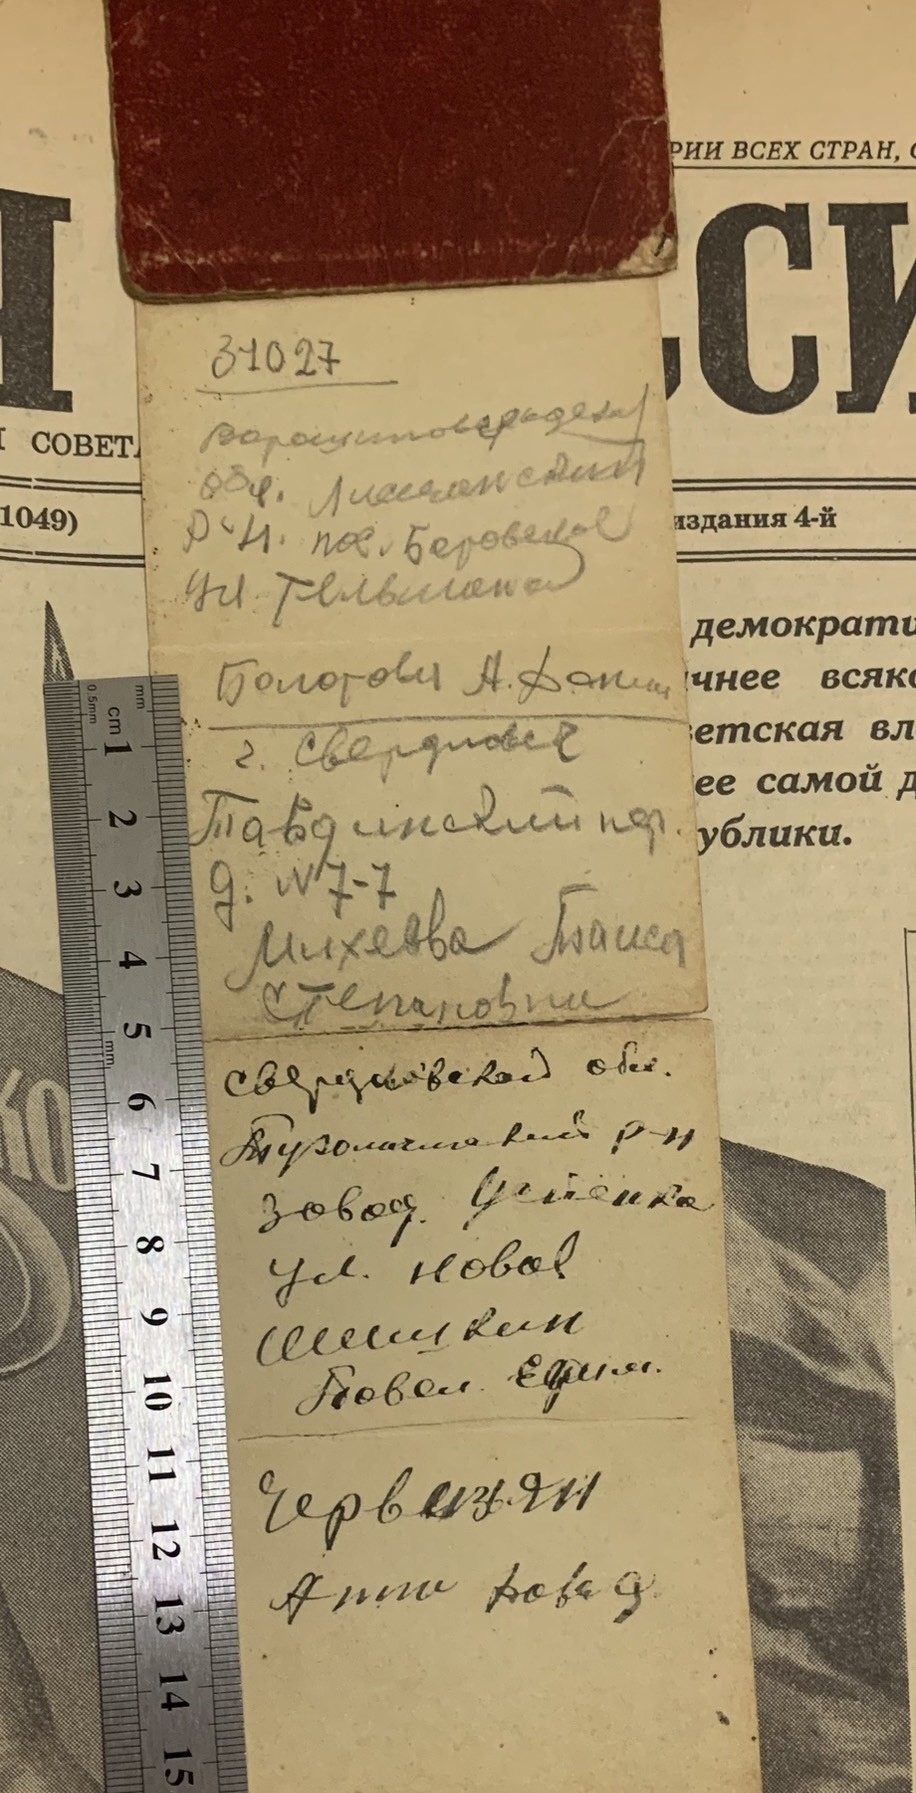 РИИ ВСЕХ СТРАН, С
СИ
СОВЕТ
1049)
издания 4-й
демократи
чнее всяко
ветская вл
ее самой д
ублики.
31027
Ворошиловградская
обл. Лисичанский
р-н. пос. Боровской
ул. Тельмана
Болотова А.
г. Свердловск
Тавдинский пер.
д. №7-7
Михеева Таиса
Степановна
Свердловской обл.
р-н
завод.
ул. Новая
Шишкин
Павел Ефим.
mm
0.5mm
cm
1
2
3
4
5
mm
6
7
8
9
10
11
12
13
14
15